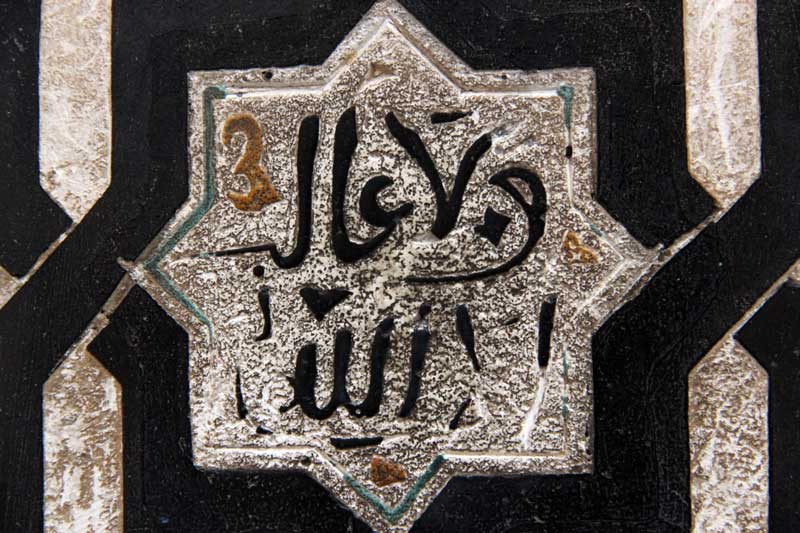 ولا غالب
إلا الله